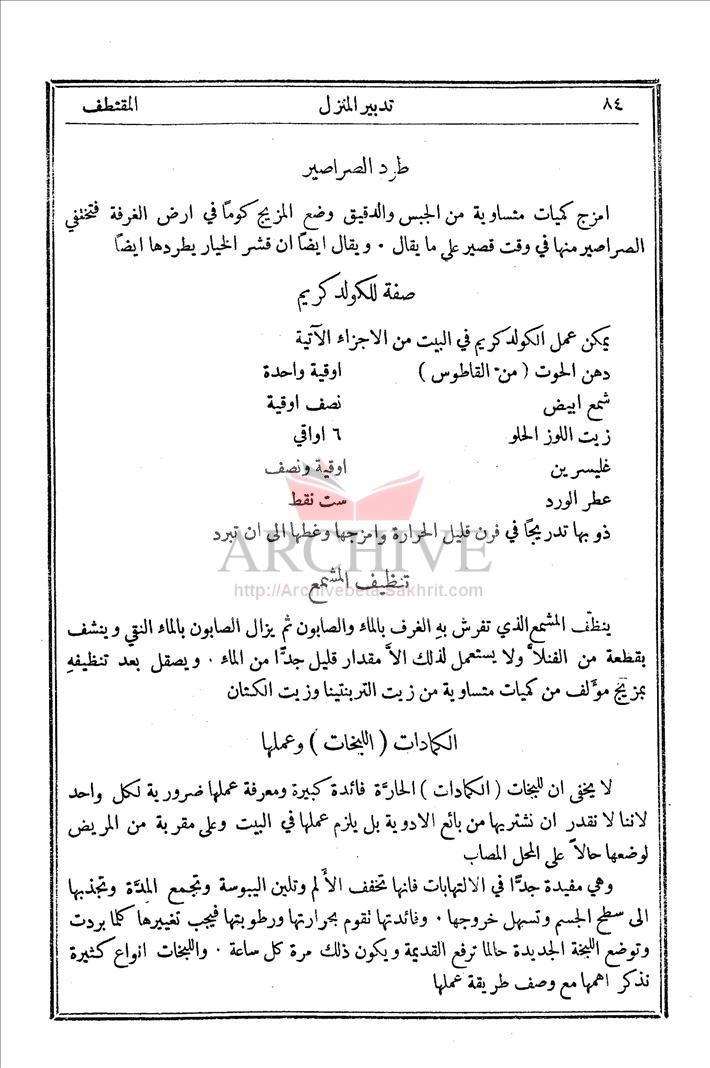 ٨٤ تدبير المنزل المقتطف
طرد الصراصير
امزج كميات متساوية من الجبس والدقيق وضع المزيج كوماً في ارض الغرفة فتختفي
الصراصير منها في وقت قصير على ما يقال ٠ ويقال ايضاً ان قشر الخيار يطردها ايضاً
صفة للكولد كريم
يمكن عمل الكولد كريم في البيت من الاجزاء الآتية
دهن الحوت ( من القاطوس ) اوقية واحدة
شمع ابيض نصف اوقية
زيت اللوز الحلو ٦ اواقي
غليسرين اوقية ونصف
عطر الورد ست نقط
ذوبها تدريجاً في فرن قليل الحرارة وامزجها وغطها الى ان تبرد
ARCHIVE
http://Archivebeta.Sakhrit.com
تنظيف المشمع
ينظّف المشمع الذي تفرش بهِ الغرف بالماء والصابون ثم يزال الصابون بالماء النقي وينشف
بقطعة من الفنلاّ ولا يستعمل لذلك الاّ مقدار قليل جدًّا من الماء ٠ ويصقل بعد تنظيفهِ
بمزيج مؤلف من كميات متساوية من زيت التربنتينا وزيت الكتان
الكمادات ( اللبخات ) وعملها
لا يخفى ان للبخات ( الكمادات ) الحارَّة فائدة كبيرة ومعرفة عملها ضرورية لكل واحد
لاننا لا نقدر ان نشتريها من بائع الادوية بل يلزم عملها في البيت وعلى مقربة من المريض
لوضعها حالاً على المحل المصاب
وهي مفيدة جدًّا في الالتهابات فانها تخفف الأَلم وتلين اليبوسة وتجمع المِدَّة وتجذبها
الى سطح الجسم وتسهل خروجها ٠ وفائدتها تقوم بحرارتها ورطوبتها فيجب تغييرها كلما بردت
وتوضع اللبخة الجديدة حالما ترفع القديمة ويكون ذلك مرة كل ساعة ٠ واللبخات انواع كثيرة
نذكر اهمها مع وصف طريقة عملها